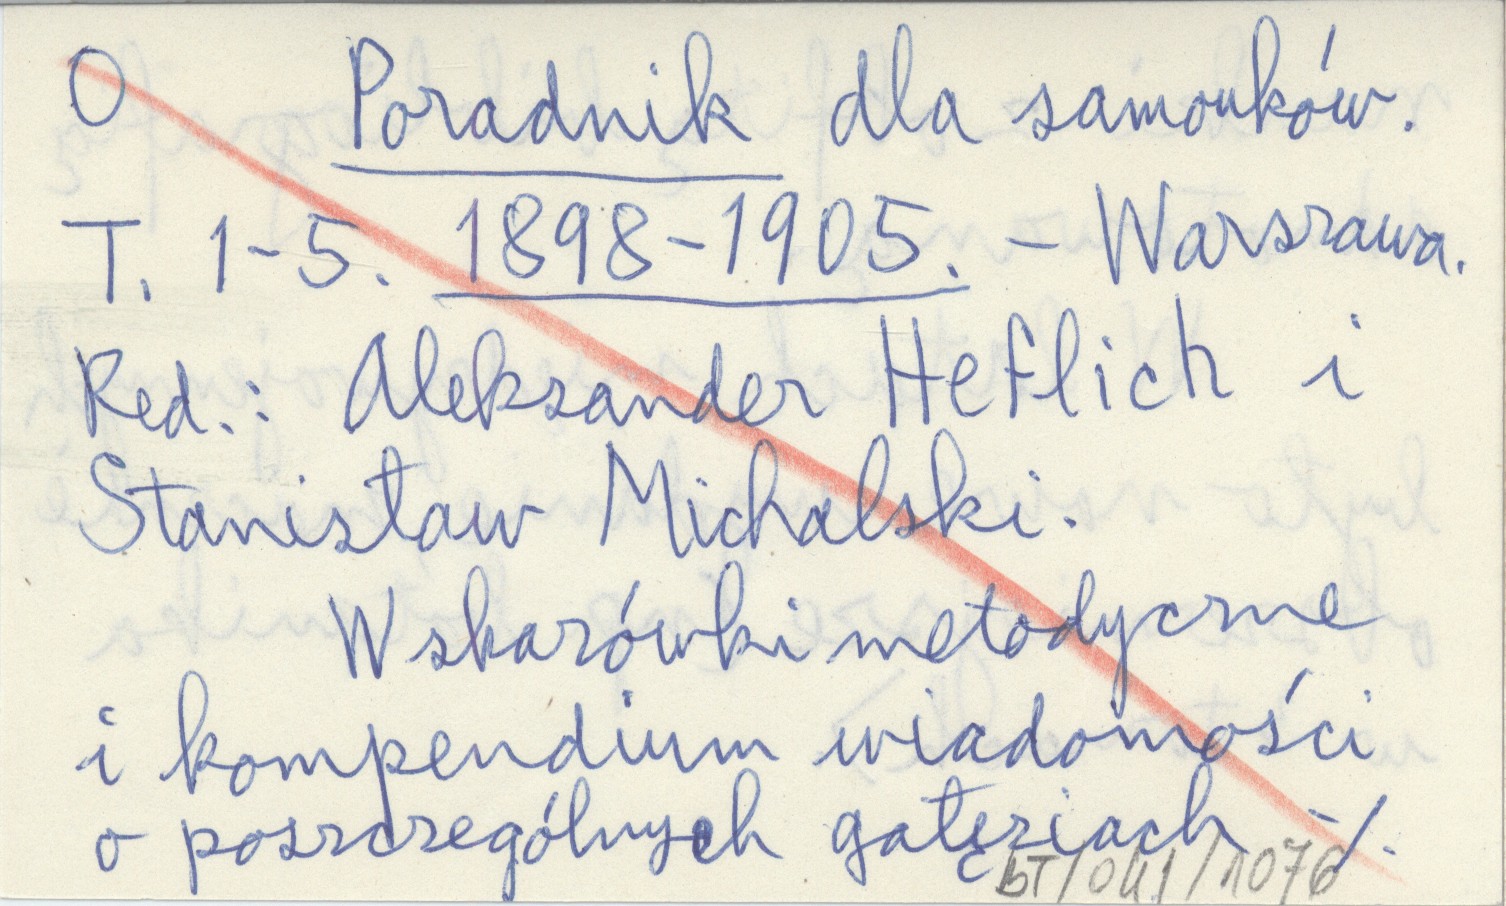 O Poradnik dla samouków.
T. 1-5. 1898-1905. - Warszawa.
Red.: Aleksander Heflich i
Stanisław Michalski.
Wskazówki metodyczne
i kompendium wiadomości
o poszczególnych gałęziach -/.
BT/041/1076